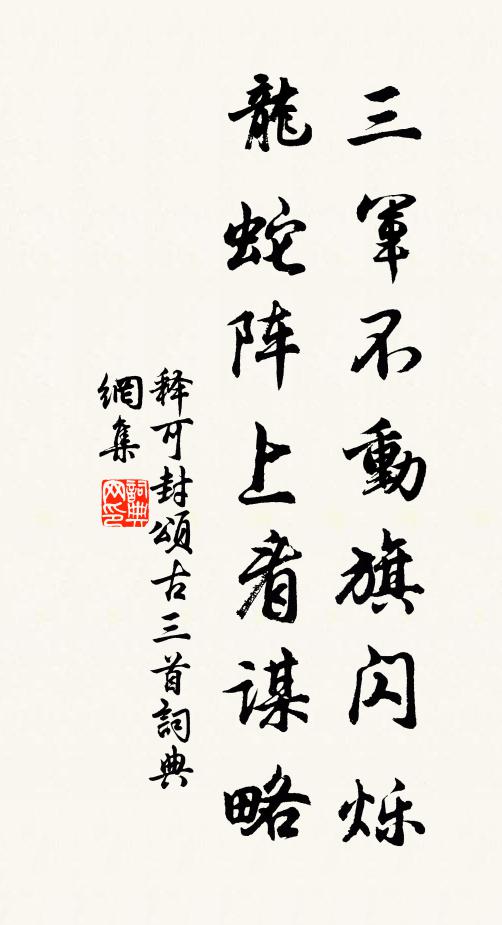 三军不動旗闪烁
龍蛇阵上看谋略
释可封頌古三首詞典
網集
詞典
网印